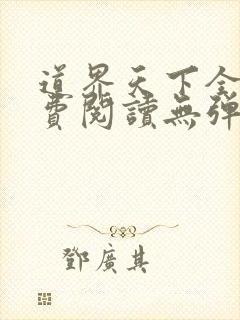 道界天下全
費閱讀無彈
鄧廣其